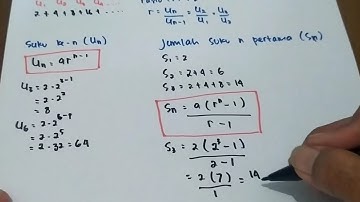 2 + 4 + 8 + 16 ....
r = Un/Un-1 = U2/U1 = U3/U2
Suku ke-n (Un)
Un = ar^n-1
U3 = 2·2^3-1
= 2·2²
= 8
U6 = 2·2^6-1
= 2·2^5
= 2·32 = 64
Jumlah suku n pertama (Sn)
S1 = 2
S2 = 2+4 = 6
S3 = 2+4+8 = 14
Sn = a(r^n-1)/r-1
S3 = 2(2³-1)/2-1
= 2(7)/1 = 14